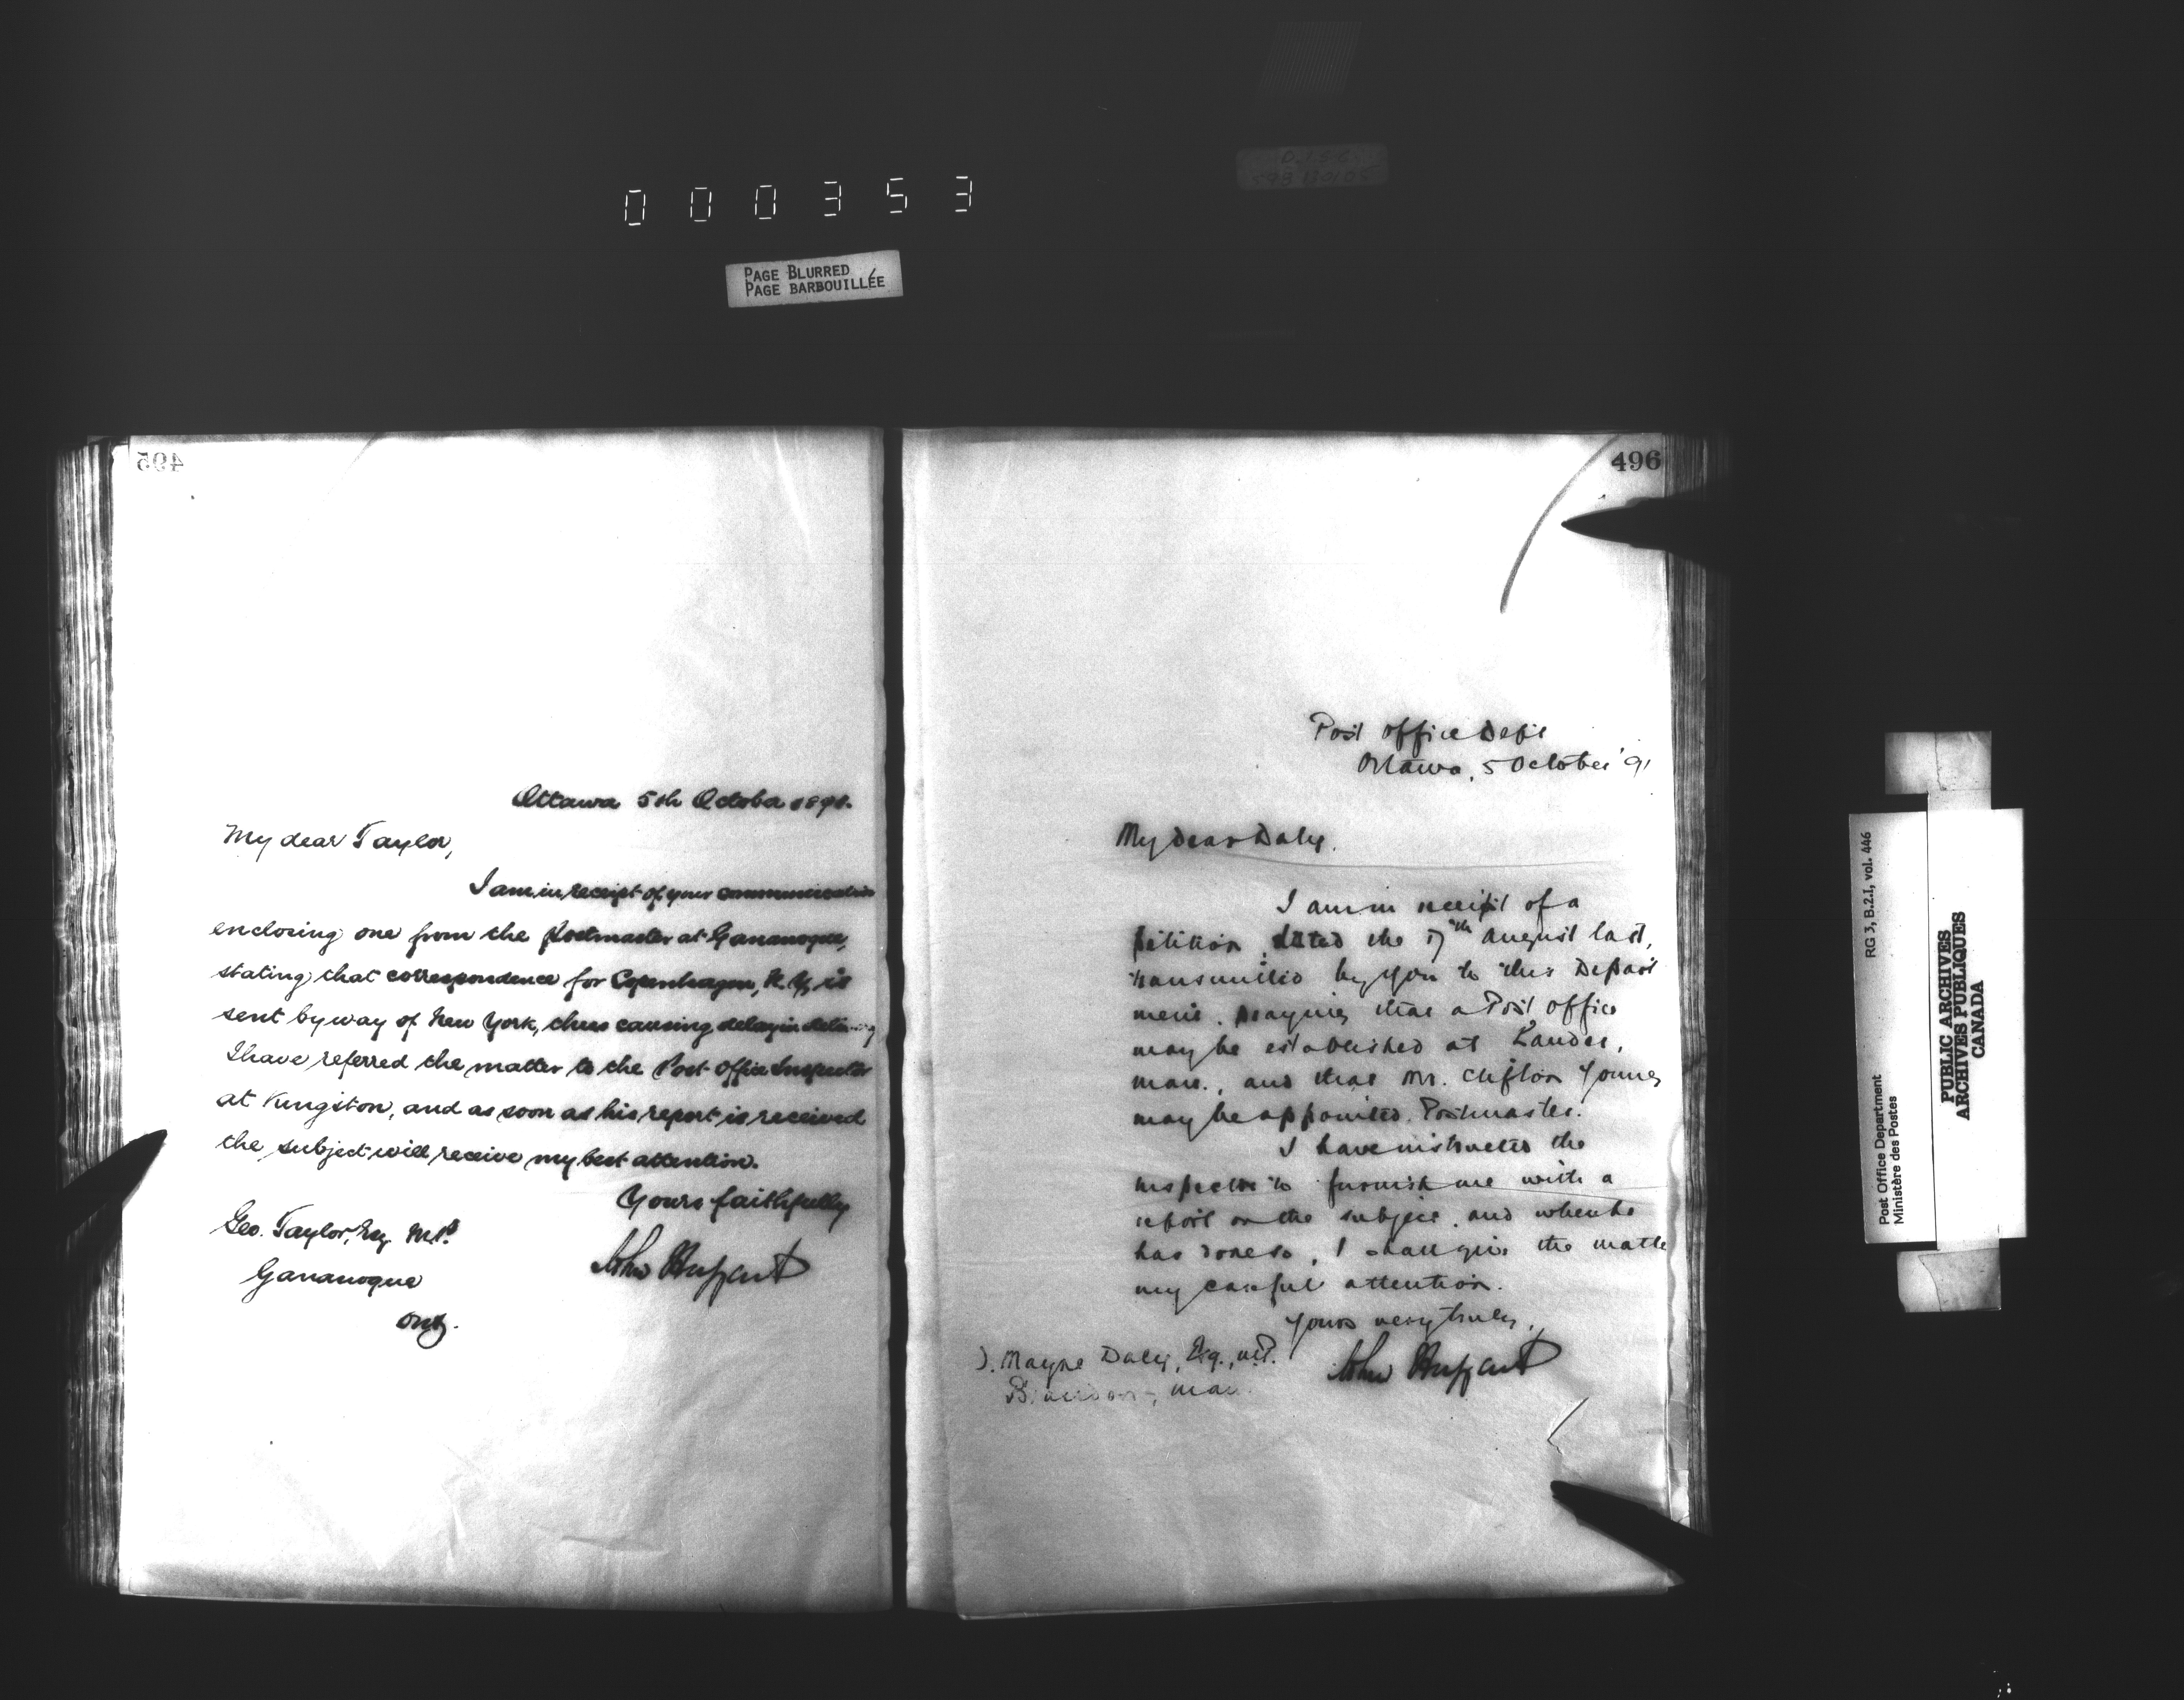 000353
PAGE BLURRED
PAGE BARBOUILLÉE
495
Ottawa 5th October 1891.
My dear Taylor,
I am in receipt of your communication
enclosing one from the Postmaster at Gananoque,
stating that correspondence for Copenhagen, N.Y., is
sent by way of New York, thus causing delay in
I have referred the matter to the Post Office Inspector
at Kingston, and as soon as his report is received
the subject will receive my best attention.
Yours faithfully
John Haggart
Geo. Taylor, Esq. M.P.
Gananoque
Ont.
496
Post Office Dept
Ottawa, 5 October '91
My dear Daly.
I am in receipt of a
petition, dated the 17th August last,
transmitted by you to this Depart
ment, praying that a Post Office
may be established at Lauder,
Man., and that Mr. Clifton Young
may be appointed Postmaster.
I have instructed the
Inspector to furnish me with a
report on the subject, and when he
has done so, I shall give the matte
my careful attention.
Yours very truly,
John Haggart
. Mayne Daly, Esq., M.P.
Brandon, Man.
RG 3, B.2.I, vol. 446
Post Office Department
Ministère des Postes
PUBLIC ARCHIVES
ARCHIVES PUBLIQUES
CANADA